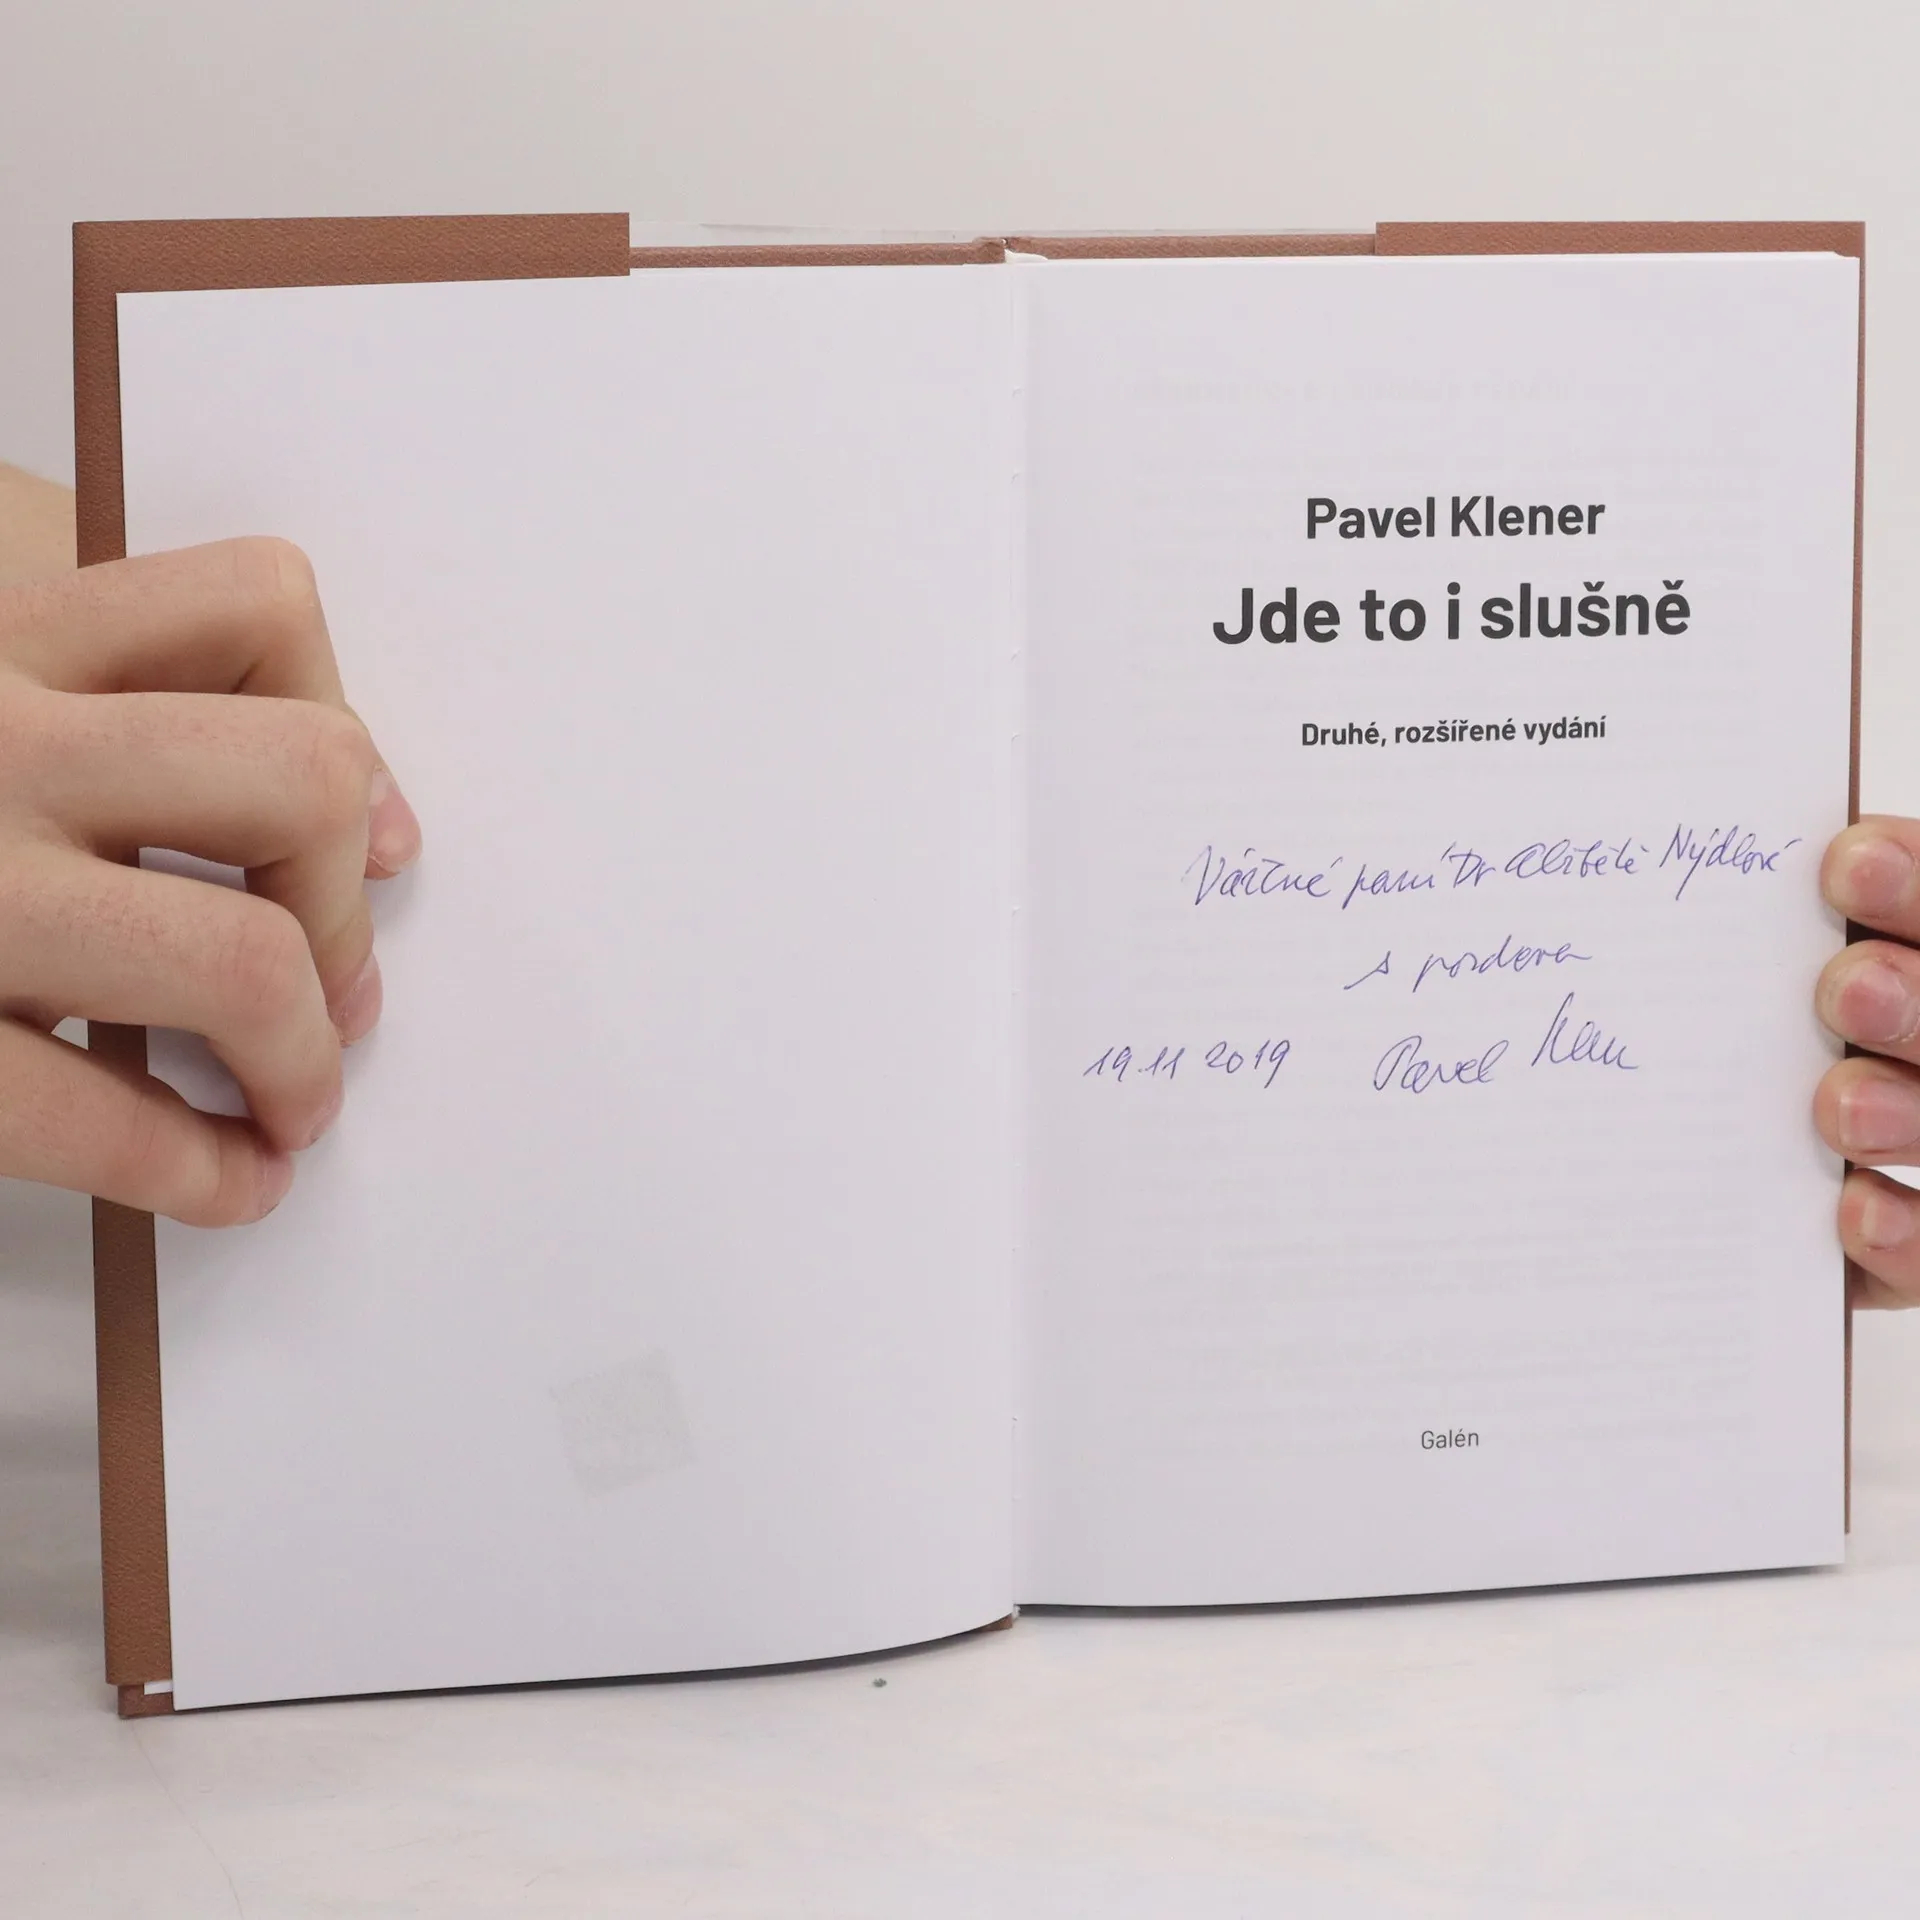 Pavel Klener
Jde to i slušně
Druhé, rozšířené vydání
Vážené paní Dr Alžbětě Nýdlové
s pozdravem
19.11 2019 Pavel Klener
Galén